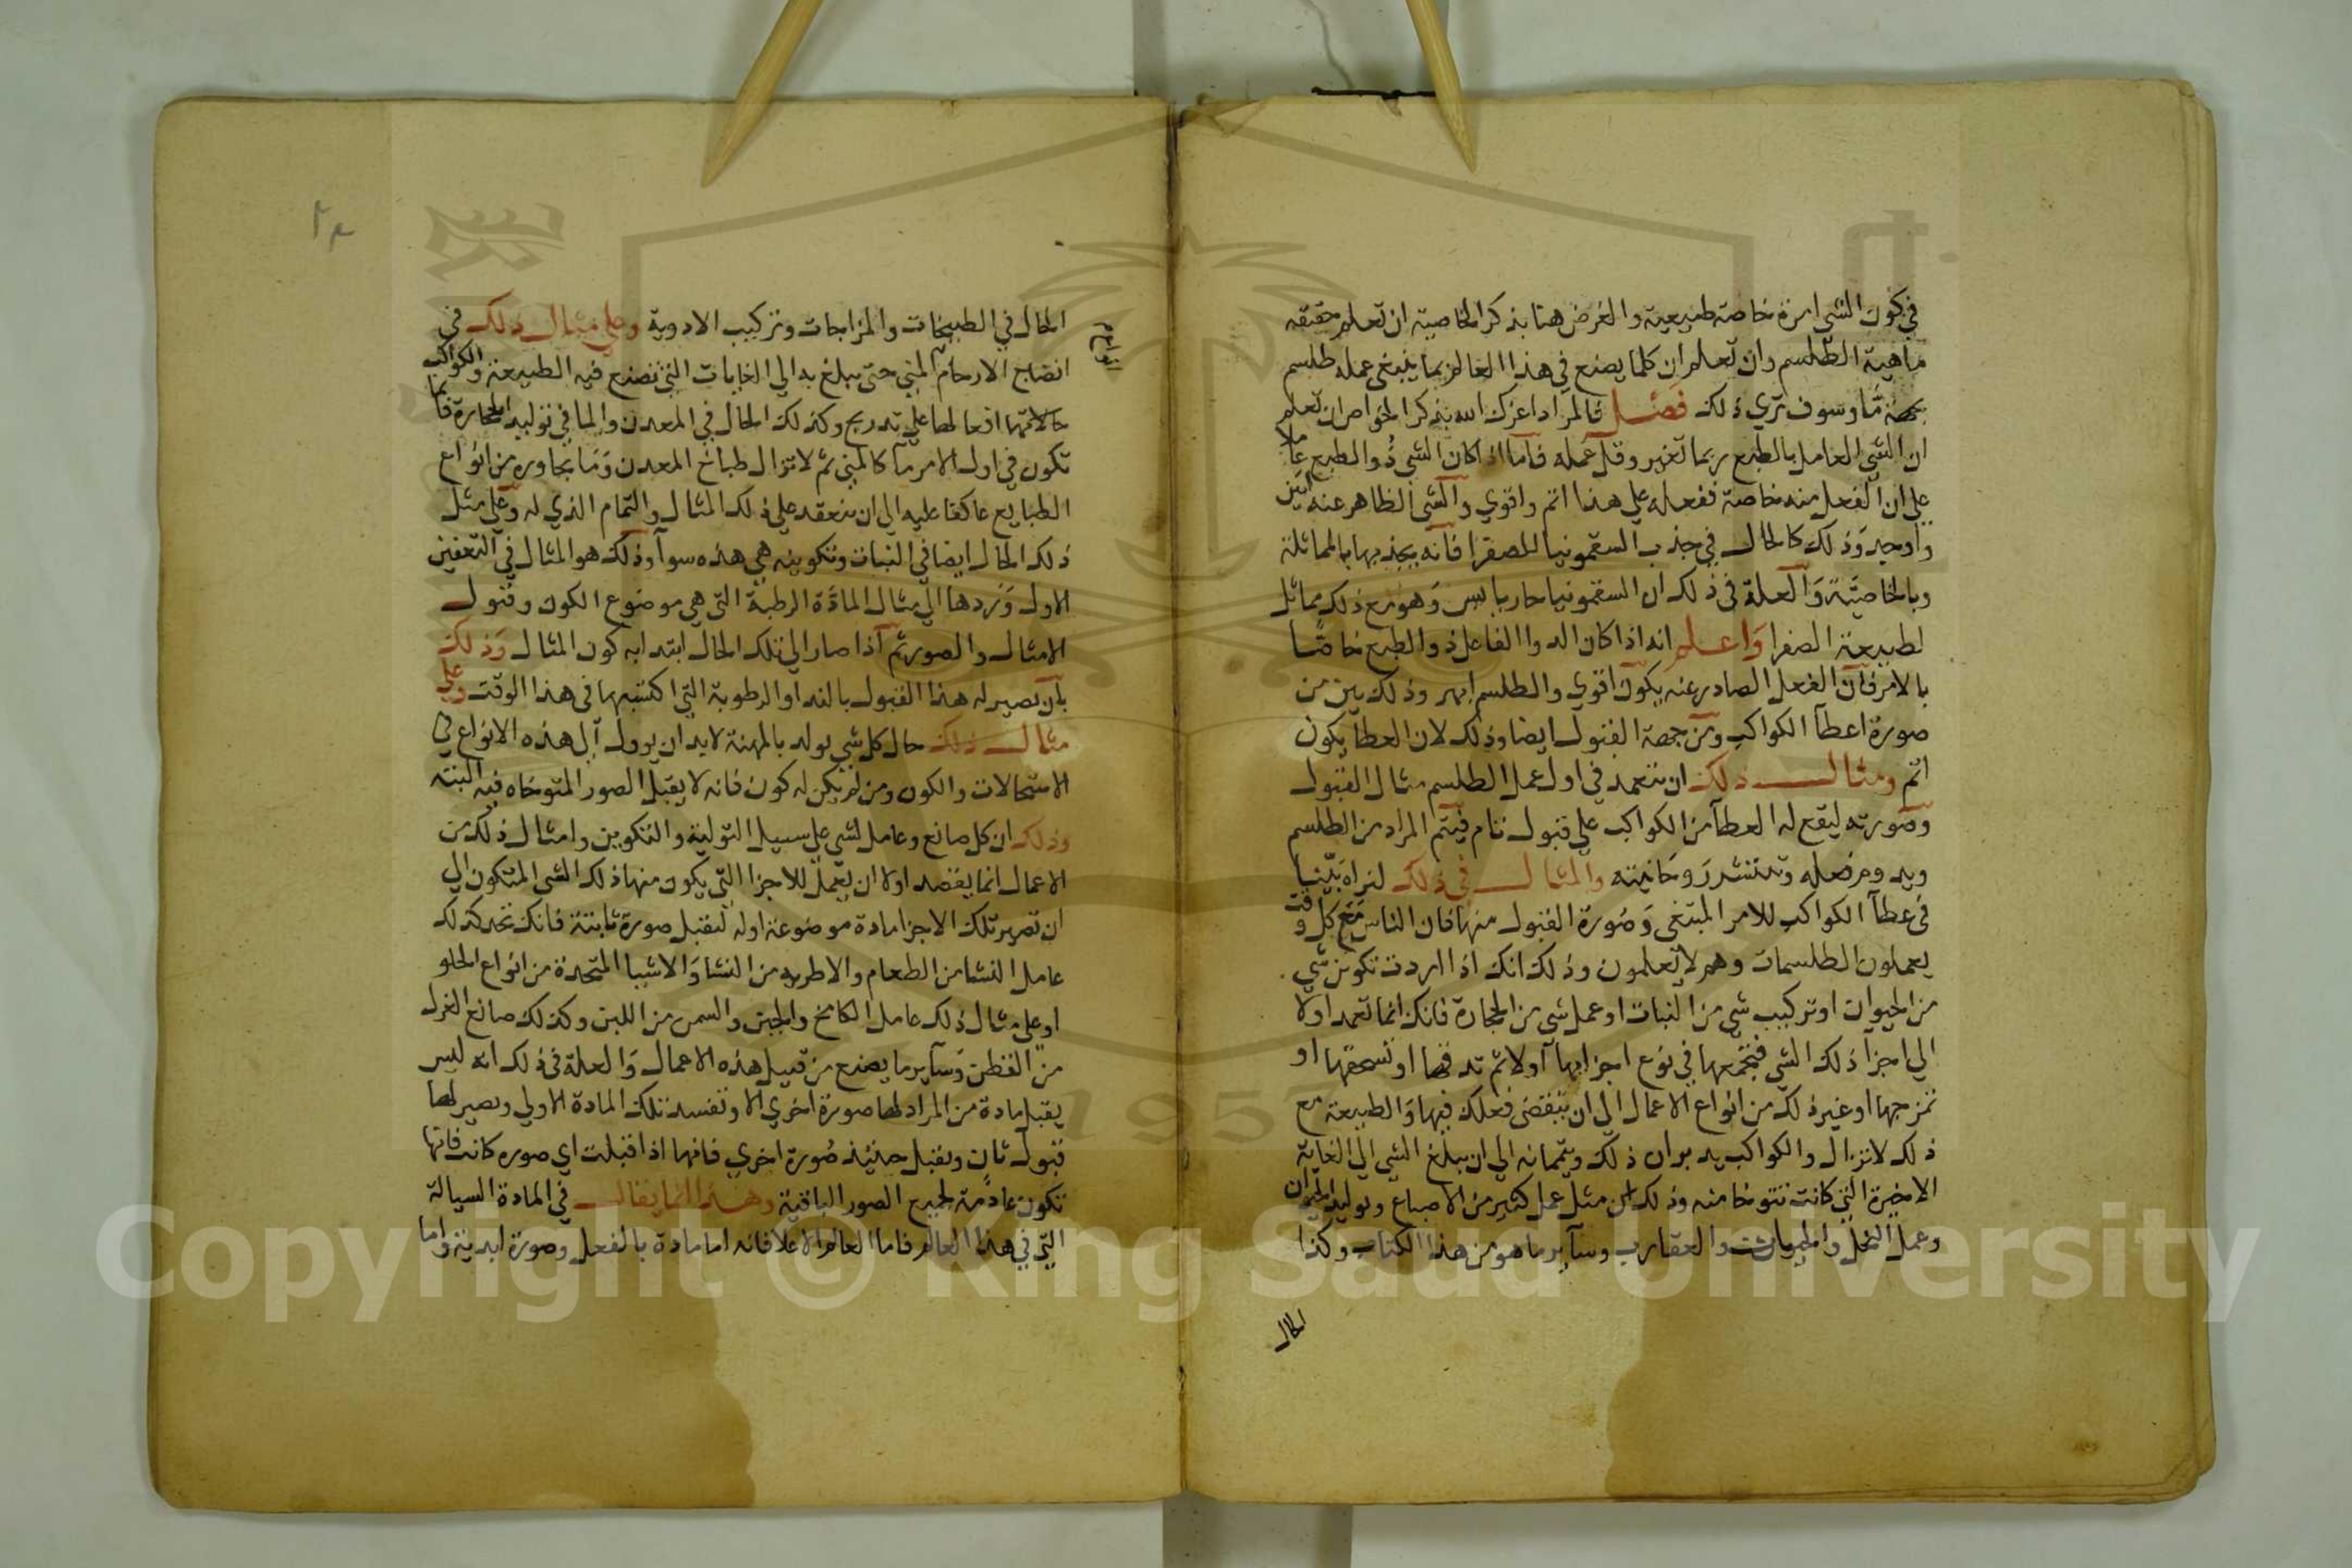 في كون الشي امرة خاصة طبيعية والغرض هنا بذكر الخاصية ان تعلم حقيقه
ماهية الطلسم وان تعلم ان كلما يصنع في هذا العالم بما ينبغي عمله طلسم
بجهة مّا وسوف تري ذلك فصــل فالمراد اعزك الله بذكر الخواص ان تعلم
ان الشي العامل بالطبع ربما تغير وقل عمله فاما اذا كان الشي ذو الطبع عاملا
علي ان الفعل منه خاصة ففعله علي هذا اتم واقوي والشي الظاهر عنه ابين
واوجد وذلك كالحال في جذب السقمونيا للصفرا فانه يجذبها بالمماثلة
وبالخاصيّة والعلة في ذلك ان السقمونيا حار يابس وهو مع ذلك مماثل
لطبيعة الصفرا واعـلم انه اذا كان الدوا الفاعل ذو الطبع خاصًا
بالامر فان الفعل الصادر عنه يكون اقوي والطلسم ابهر وذلك بين من
صورة اعطآ الكواكب ومن جهة القبول ايضا وذلك لان العطا يكون
اتم ومثال ذلك ان تتعمد في اول عمل الطلسم مثال القبول
وصورته ليقع له العطآ من الكواكب علي قبول تام فيتم المراد من الطلسم
ويدوم فعله وتنتشر روحانيته والمثال في ذلك لتراه بيّنا
في عطآ الكواكب للامر المبتغي وصورة القبول منها فان الناس مع كل وقت
يعملون الطلسمات وهم لا يعلمون وذلك انك اذا اردت تكوين شي
من الحيوان او تركيب شي من النبات او عمل شي من الحجارة فانك انما تعمد اولا
الي اجزا ذلك الشي فتجمعها في نوع اجزايها اولا ثم تدقها او تسحقها او
تمزجها او غير ذلك من انواع الاعمال الي ان ينقضي فعلك فيها والطبيعة مع
ذلك لا تزال والكواكب يدبران ذلك ويتممانه الي ان يبلغ الشي الي الغاية
الاخيرة التي كانت تتوخا منه وذلك من مثل عمل كثير من الاصباغ وتوليد الحيوان
وعمل النحل والحيات والعقارب وسآير ما هو من هذا الكتاب وكذا
الحال
الحال في الطبيخات والمزاجات وتركيب الادوية وعلي مثال ذلك في
انضاج الارحام المني حتى يبلغ به الي الغايات التي تصنع فيه الطبيعة والكواكب
حالاتهما افعالها علي تدريج وكذلك الحال في المعدن والما في توليد الحجارة فانما
تكون في اول الامر مآ كالمني ثم لا تزال طباخ المعدن وما يجاوره من انواع
الطبايع عاكفا عليه الي ان ينعقد علي ذلك المثال والتمام الذي له وعلي مثل
ذلك الحال ايضا في النبات وتكوينه هي هذه سوآ وذلك هو المثال في التعفين
الاول وتردها الي مثال المادّة الرطبة التي هي موضوع الكون وقبول
الامثال والصور ثم اذا صار الي تلك الحال ابتدا به كون المثال وذلك
بان تصير له هذا القبول بالندا والرطوبة التي اكتسبها في هذا الوقت وعلي
مثال ذلك حال كل شي يولد بالمهنة لا بد ان يوول الي هذه الانواع في
الاستحالات والكون ومن لم يكن له كون فانه لا يقبل الصور المتوخاه فيه البتة
وذلك ان كل صانع وعامل لشي علي سبيل التولية والتكوين وامثال ذلك من
الاعمال انما يقصد اولا ان يعمل للاجزا التي يكون منها ذلك الشي المتكون الي
ان تصير تلك الاجزا مادة موضوعة اوله لتقبل صورة ثابتة فانك تجد كذلك
عامل النشا من الطعام والاطريه من النشا والاشيا المتخذة من انواع الحلو
او علي مثال ذلك عامل الكامخ والجبن والسمن من اللبن وكذلك صانع الغزل
من القطن وسآير ما يصنع من قبيل هذه الاعمال والعلة في ذلك انه ليس
يقبل مادة من المراد لها صورة اخري الا وتفسد تلك المادة الاولي ويصير لها
قبول ثان وتقبل حينئذ صورة اخري فانها اذا قبلت اي صوره كانت فانها
تكون عادمة لجميع الصور الباقية وهذا انما يقال في المادة السيالة
التي في هذا العالم فاما العالم الاعلا فانه اما مادة بالفعل وصورة ابدية واما
Copyright © King Saud University
1957